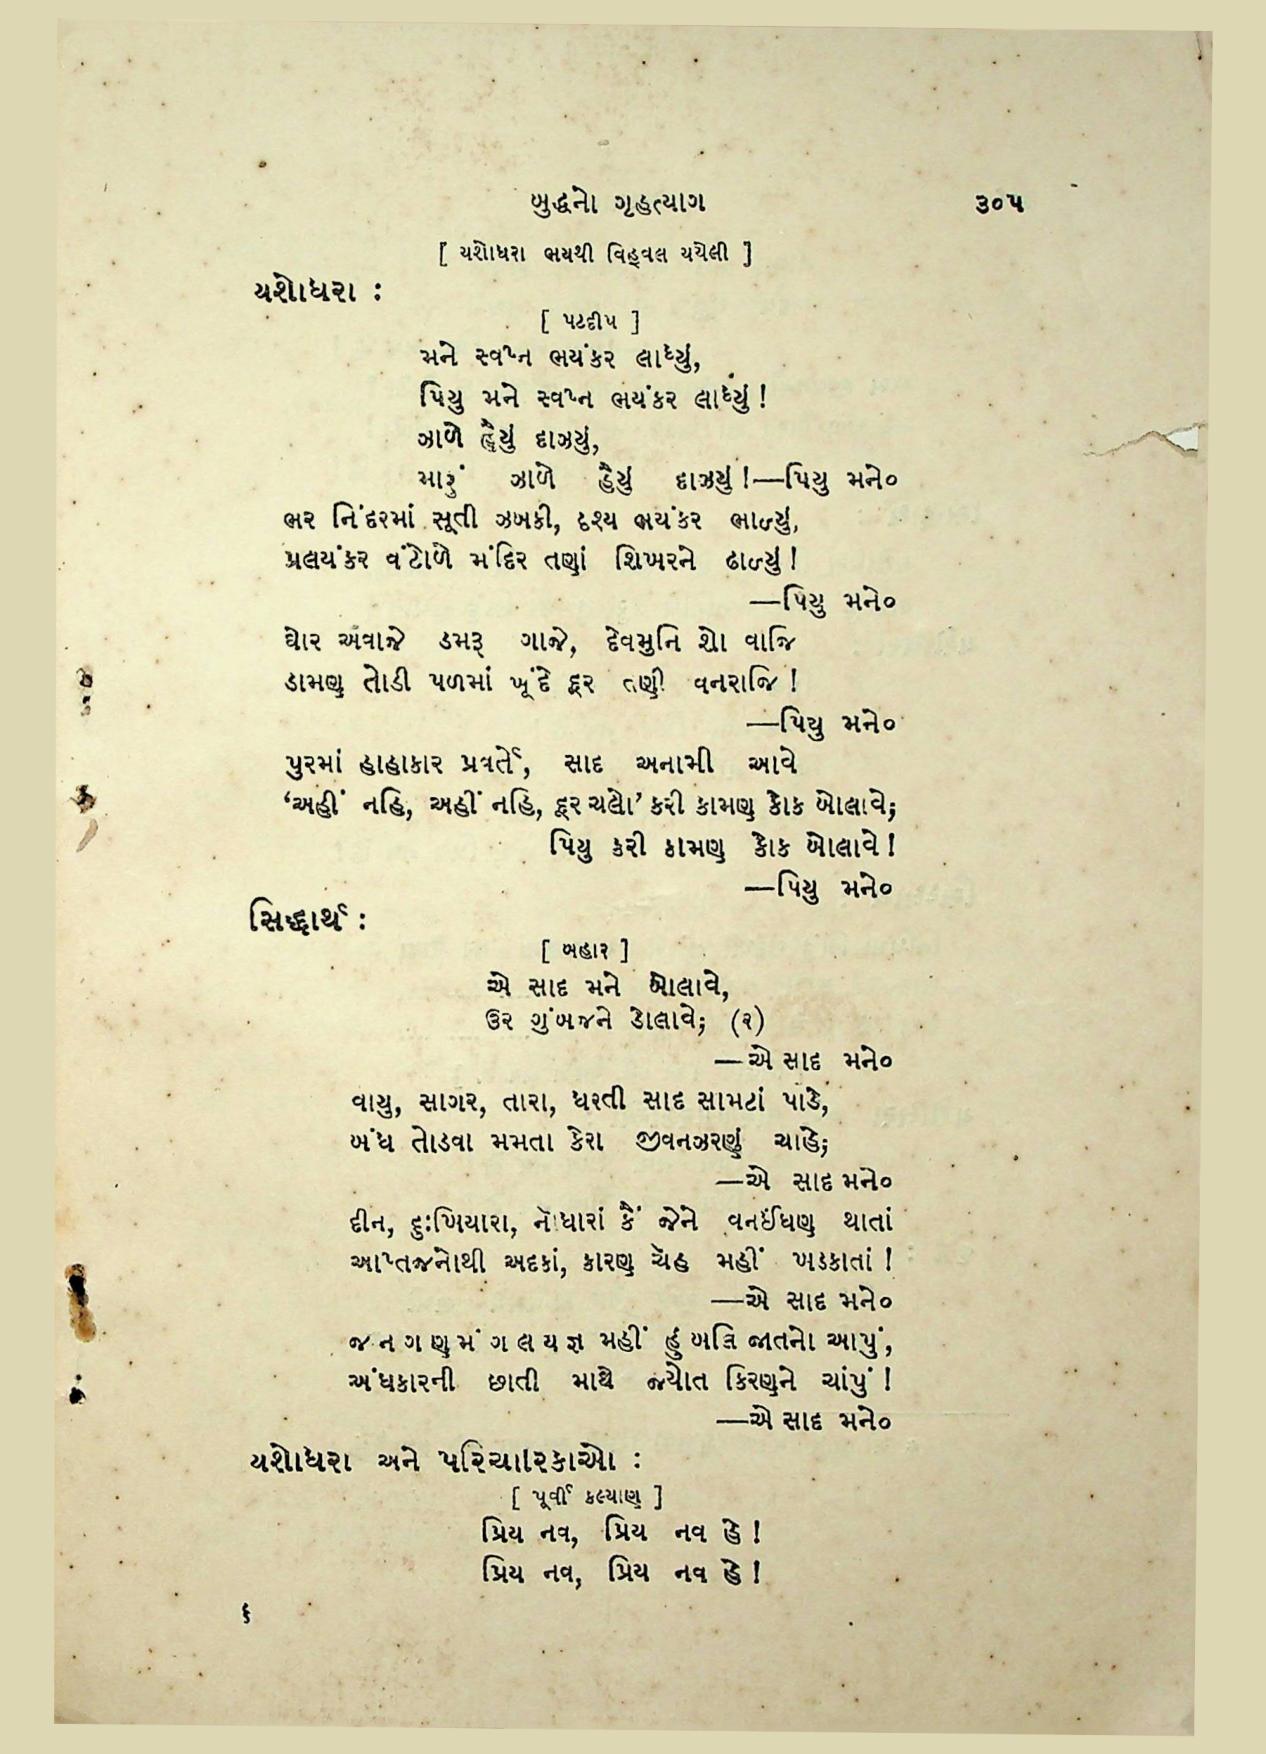 બુદ્ધનો ગૃહત્યાગ ૩૦૫
[ યશોધરા ભયથી વિહ્વલ થયેલી ]
યશોધરા :
[ પટદીપ ]
મને સ્વપ્ન ભયંકર લાધ્યું,
પિયુ મને સ્વપ્ન ભયંકર લાધ્યું !
ઝાળે હૈયું દાઝયું,
મારું ઝાળે હૈયું દાઝયું !—પિયુ મને૦
ભર નિંદરમાં સૂતી ઝબકી, દૃશ્ય ભયંકર ભાળ્યું,
પ્રલયંકર વંટોળે મંદિર તણાં શિખરને ઢાળ્યું !
—પિયુ મને૦
ઘોર અવાજે ડમરૂ ગાજે, દેવમુનિ શો વાજિ
ડામણ તોડી પળમાં ખૂંદે દૂર તણી વનરાજિ !
—પિયુ મને૦
પુરમાં હાહાકાર પ્રવર્તે, સાદ અનામી આવે
‘અહીં નહિ, અહીં નહિ, દૂર ચલો’ કરી કામણ કોક બોલાવે;
પિયુ કરી કામણ કોક બોલાવે !
—પિયુ મને૦
સિદ્ધાર્થ :
[ બહાર ]
એ સાદ મને બોલાવે,
ઉર ગુંબજને ડોલાવે; (૨)
—એ સાદ મને૦
વાયુ, સાગર, તારા, ધરતી સાદ સામટાં પાડે,
બંધ તોડવા મમતા કેરા જીવનઝરણું ચાહે;
—એ સાદ મને૦
દીન, દુઃખિયારા, નોધારાં કૈં જેને વનઈંધણ થાતાં
આપ્તજનોથી અદકાં, કારણ ચેહ મહીં ખડકાતાં !
—એ સાદ મને૦
જનગણમંગલયજ્ઞ મહીં હું બલિ જાતનો આપું,
અંધકારની છાતી માથે જ્યોત કિરણને ચાંપું !
—એ સાદ મને૦
યશોધરા અને પરિચારિકાઓ :
[ પૂર્વી કલ્યાણ ]
પ્રિય નવ, પ્રિય નવ હે !
પ્રિય નવ, પ્રિય નવ હે !
૬